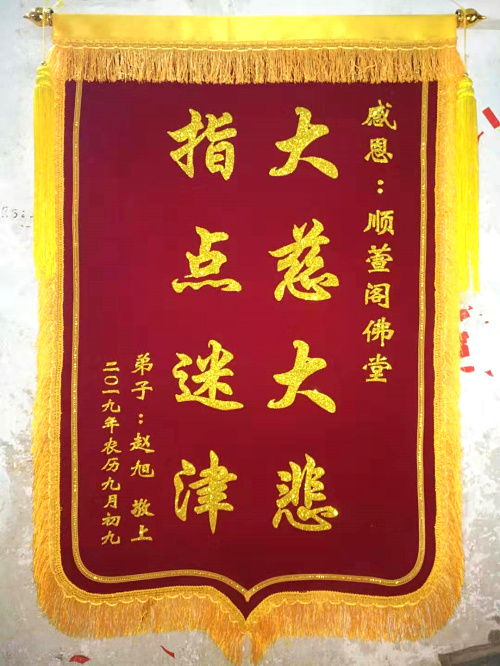 感恩：顺萱阁佛堂
大慈大悲
指点迷津
弟子：赵旭 敬上
二〇一九年农历九月初九